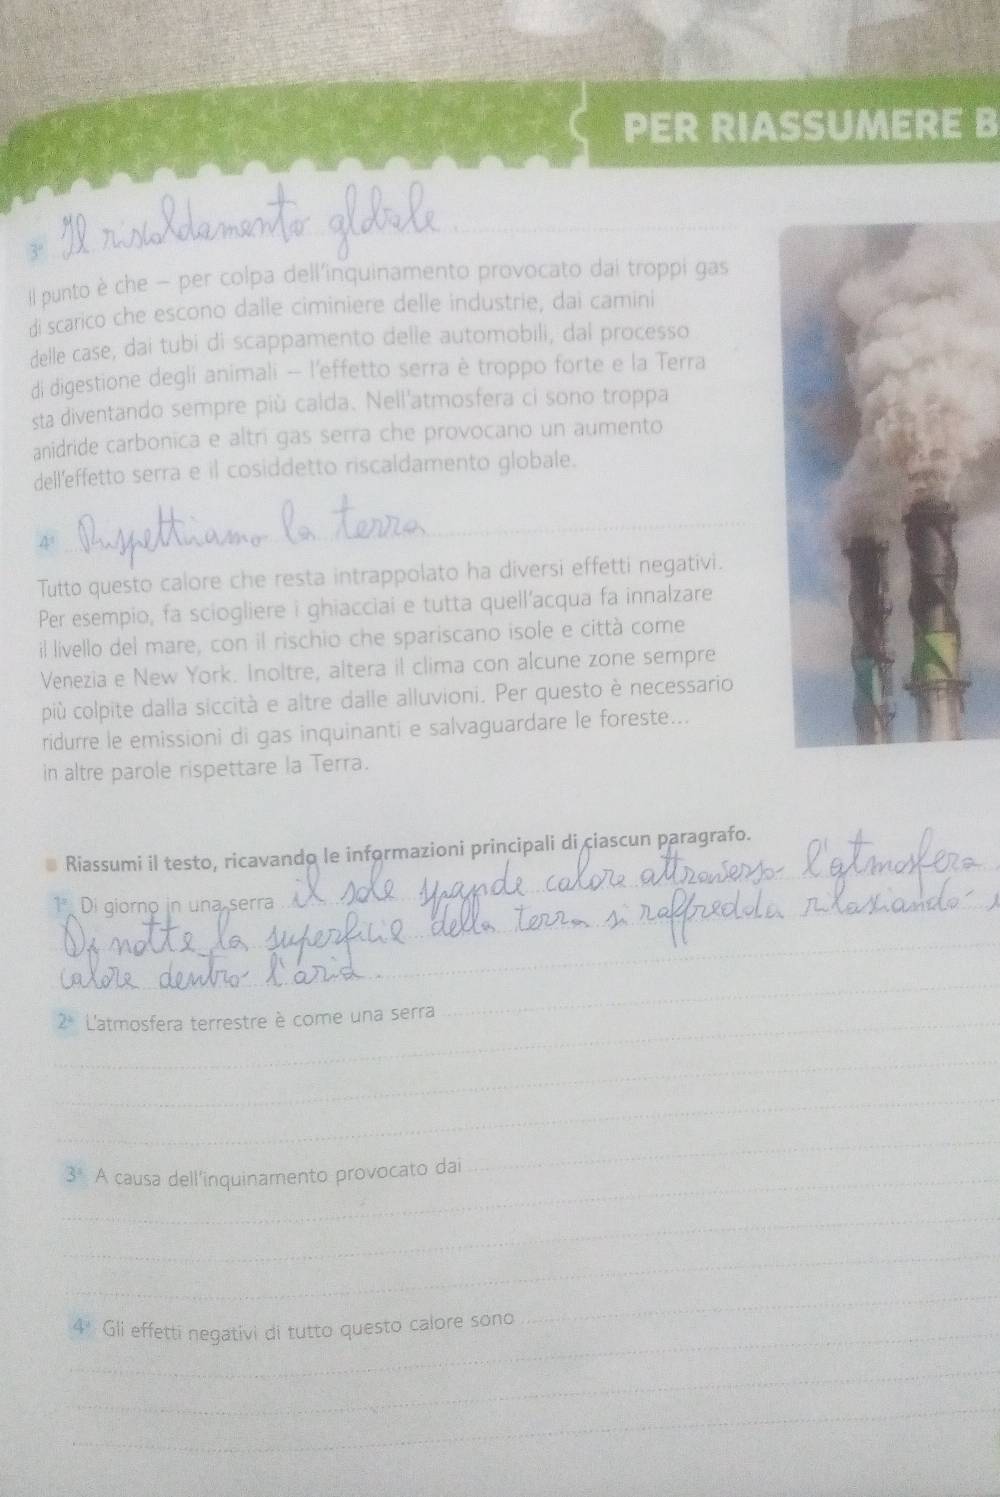 PER RIASSUMERE B
3° Il riscaldamento globale.
Il punto è che – per colpa dell'inquinamento provocato dai troppi gas
di scarico che escono dalle ciminiere delle industrie, dai camini
delle case, dai tubi di scappamento delle automobili, dal processo
di digestione degli animali – l'effetto serra è troppo forte e la Terra
sta diventando sempre più calda. Nell'atmosfera ci sono troppa
anidride carbonica e altri gas serra che provocano un aumento
dell'effetto serra e il cosiddetto riscaldamento globale.
4° Rispettiamo la terra
Tutto questo calore che resta intrappolato ha diversi effetti negativi.
Per esempio, fa sciogliere i ghiacciai e tutta quell'acqua fa innalzare
il livello del mare, con il rischio che spariscano isole e città come
Venezia e New York. Inoltre, altera il clima con alcune zone sempre
più colpite dalla siccità e altre dalle alluvioni. Per questo è necessario
ridurre le emissioni di gas inquinanti e salvaguardare le foreste...
in altre parole rispettare la Terra.
Riassumi il testo, ricavando le informazioni principali di ciascun paragrafo.
1° Di giorno in una serra il sole spande calore attraverso l'atmosfera
Di notte la superficie della terra si raffredda rilasciando
calore dentro l'aria.
2° L'atmosfera terrestre è come una serra
3° A causa dell'inquinamento provocato dai
4° Gli effetti negativi di tutto questo calore sono